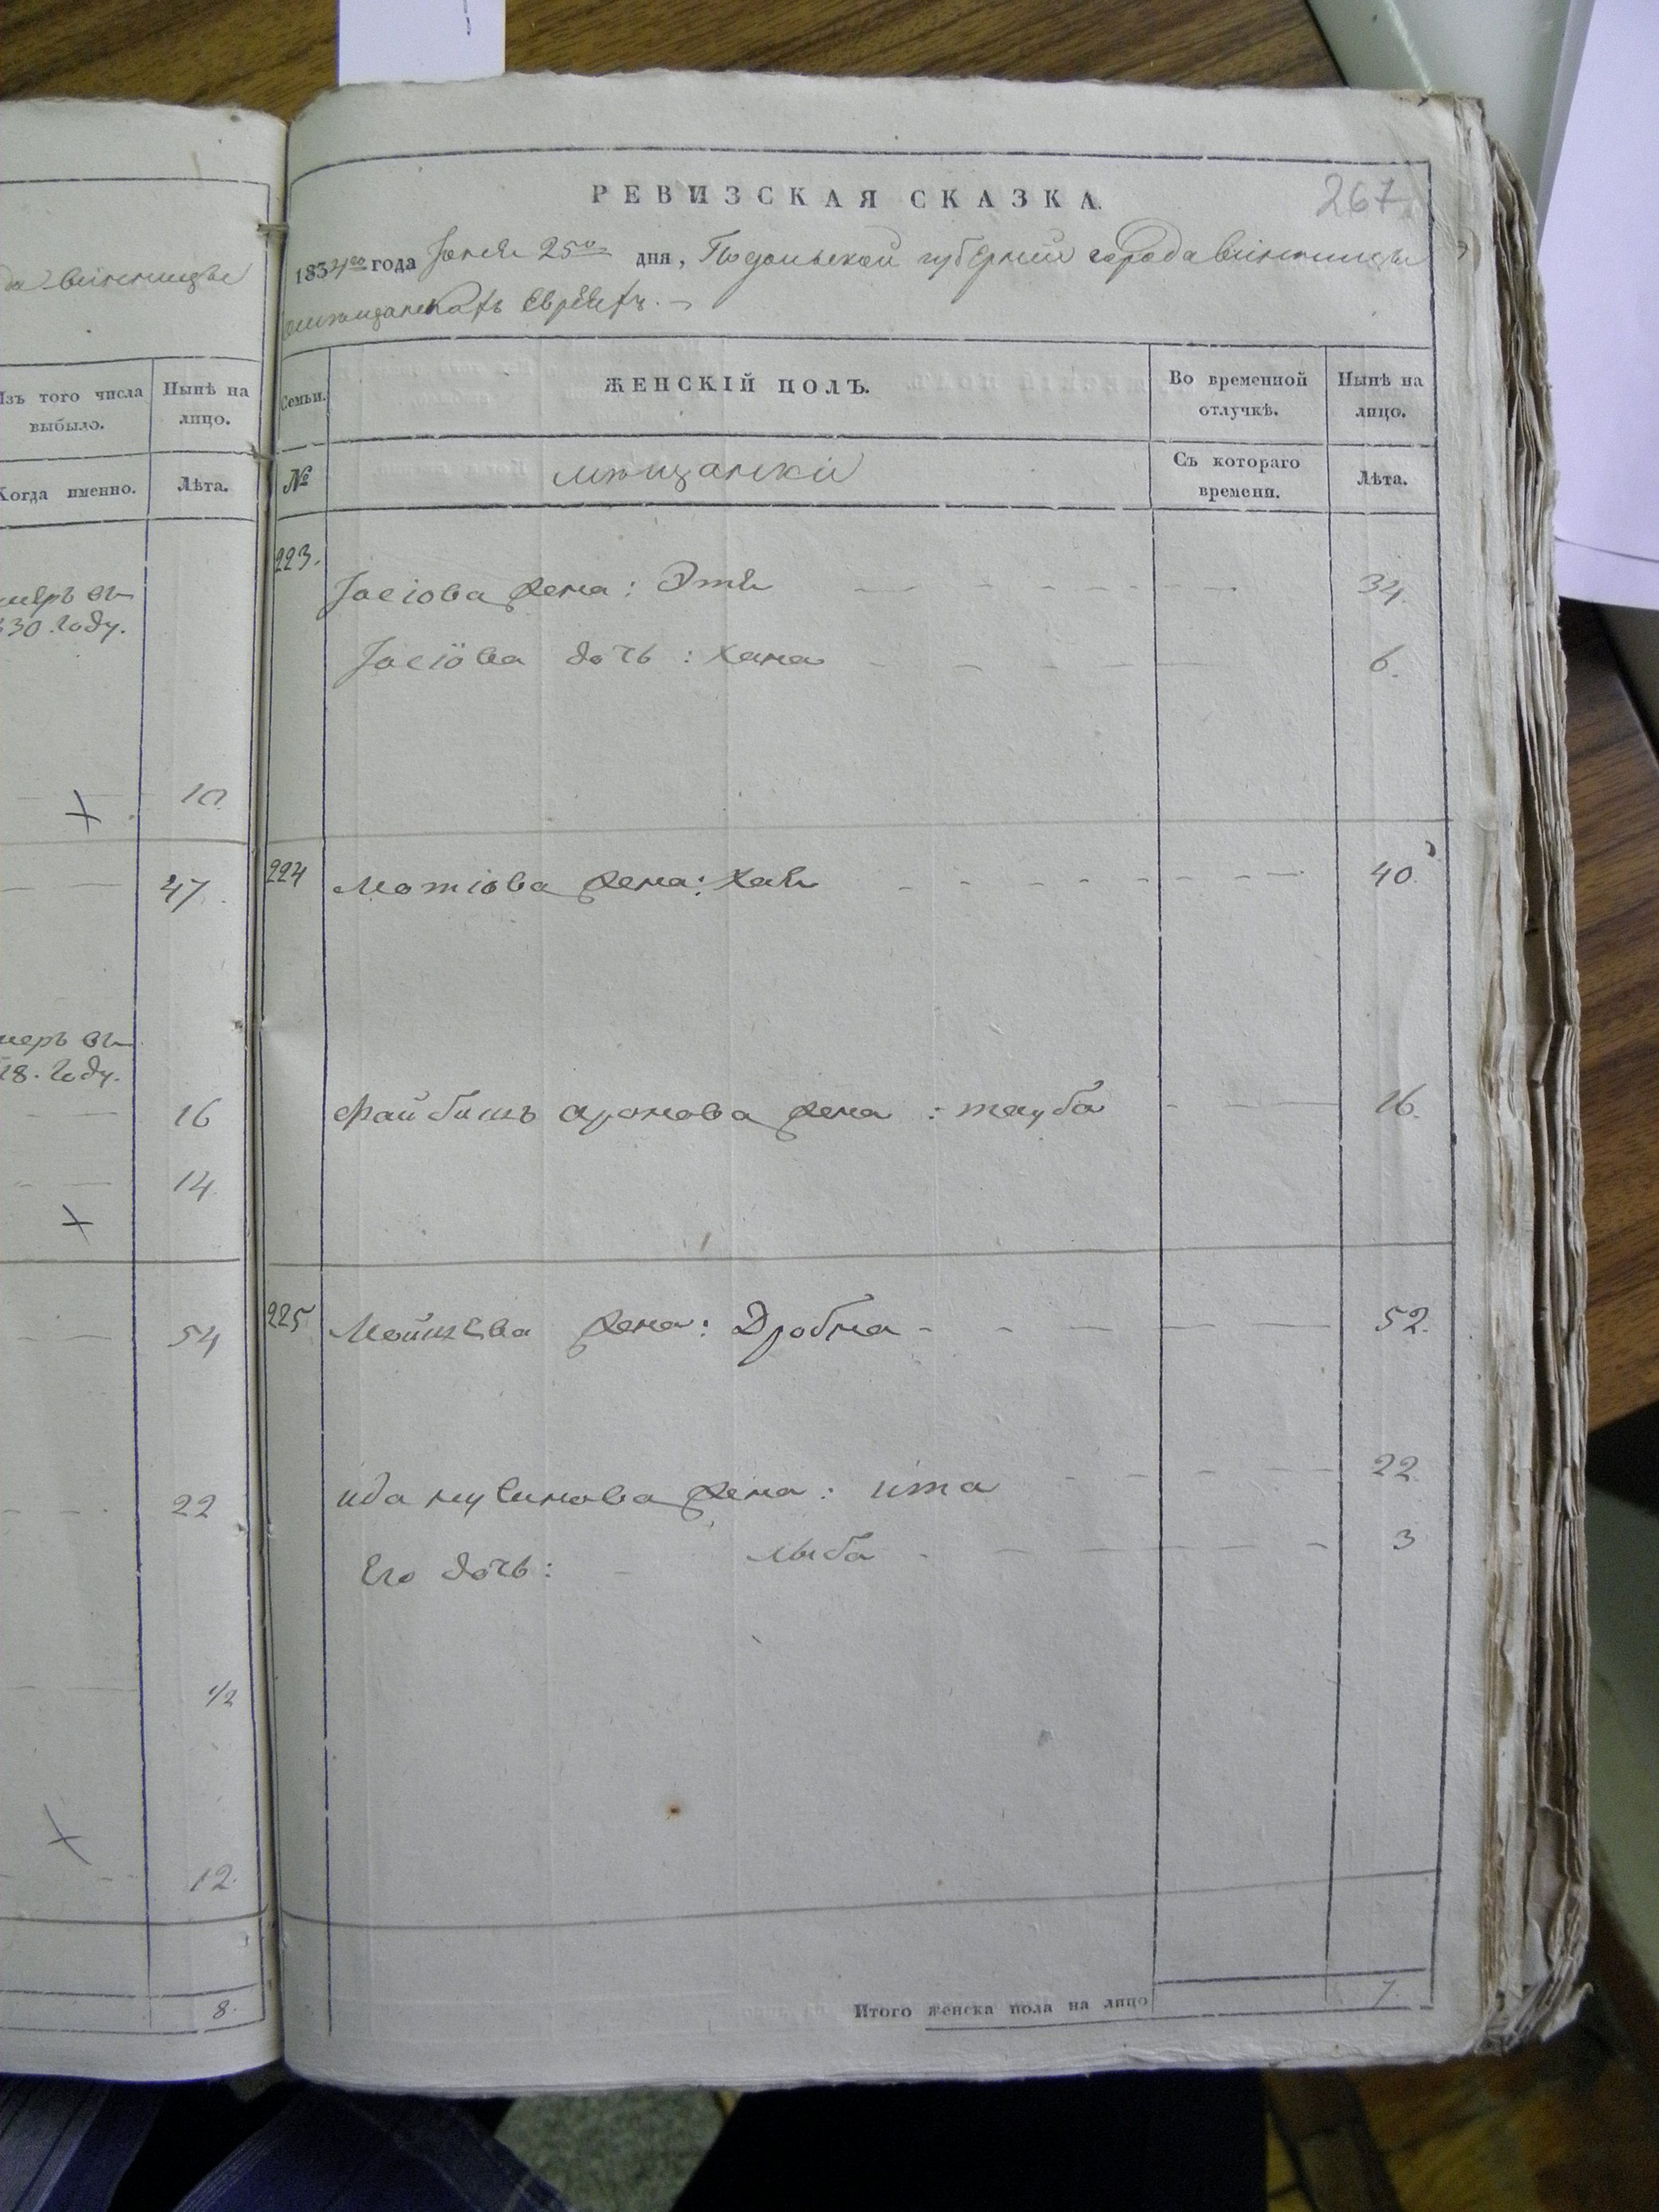 да Винницы
Изъ того числа выбыло.
Нынѣ на лицо.
Когда именно.
Лѣта.
30 году.
10.
47.
18. году.
16
14
54
22
1/2
12.
8.
267
РЕВИЗСКАЯ СКАЗКА.
1834го года Іюня 25го дня, Подольской губерніи города Винницы
мѣщанскахъ Евреехъ.
Семьи.
ЖЕНСКІЙ ПОЛЪ.
Во временной отлучкѣ.
Нынѣ на лицо.
№
мѣщанки
Съ котораго времени.
Лѣта.
223. Іосіова жена: Этя 34.
Іосіова дочь: хана 6.
224 Мотіова жена: хая 40.
Файбишъ Аронова жена: тауба 16.
225 Мойшева жена: Дробна 52.
жена: ита 22.
Его дочь: лыба 3
Итого женска пола на лицо 7.